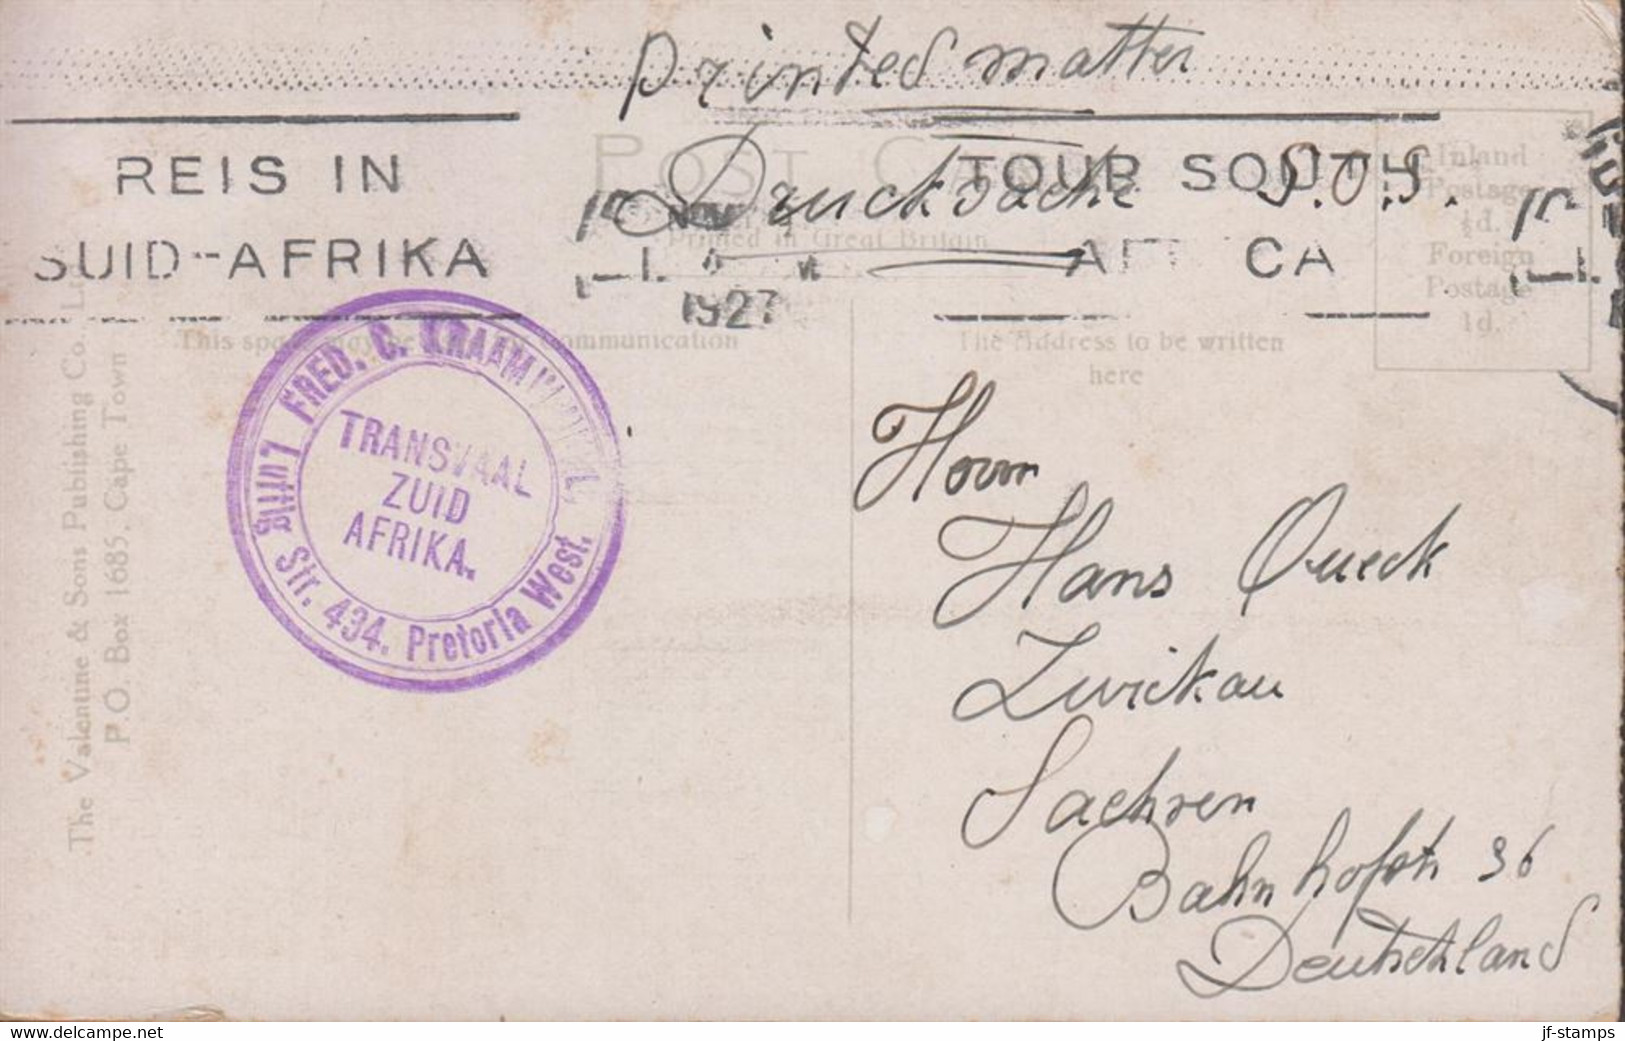 Printed matter
Drucksache S.O.S.
POST CARD
Printed in Great Britain
REIS IN
SUID-AFRIKA
TOUR SOUTH
AFRICA
NOV
1927
Inland
Postage
½d.
Foreign
Postage
1d.
This space may be used for communication
The Address to be written
here
FRED. C. KRAAMWINKEL,
Luttig Str. 434. Pretoria West.
TRANSVAAL
ZUID
AFRIKA.
The Valentine & Sons Publishing Co.
P.O. Box 1685, Cape Town
Herrn
Hans Queck
Zwickau
Sachsen
Bahnhofstr 36
Deutschland
jf-stamps